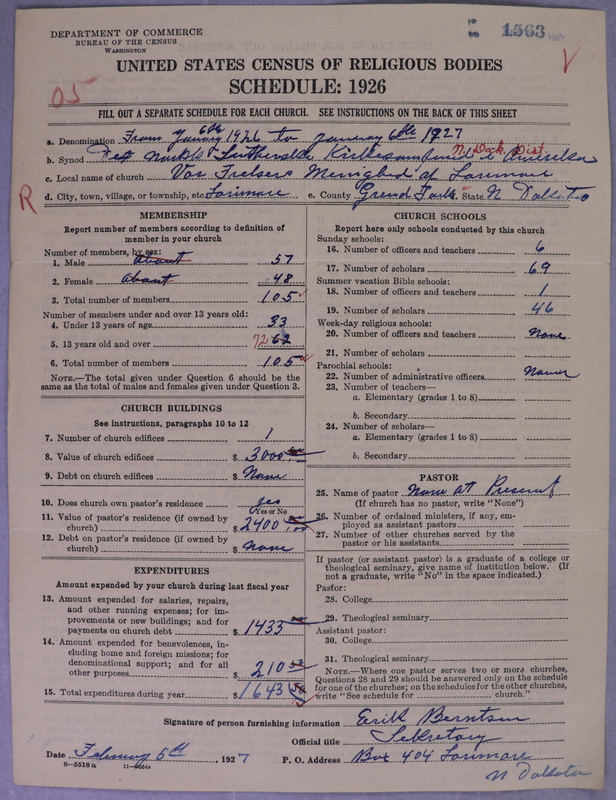 DEPARTMENT OF COMMERCE
BUREAU OF THE CENSUS
WASHINGTON
1563
1927
UNITED STATES CENSUS OF RELIGIOUS BODIES
SCHEDULE: 1926
05
FILL OUT A SEPARATE SCHEDULE FOR EACH CHURCH. SEE INSTRUCTIONS ON THE BACK OF THIS SHEET
a. Denomination From January 6th 1926 to January 6th 1927
N. Dak. Dist.
b. Synod Det Norske Lutherske
c. Local name of church Vor Frelsers Menighed af Larimore
d. City, town, village, or township, etc. Larimore e. County Grand Forks State N Dakota
R
MEMBERSHIP
Report number of members according to definition of member in your church
Number of members, by sex:
1. Male about 57
2. Female about 48
3. Total number of members 105
Number of members under and over 13 years old:
4. Under 13 years of age 33
5. 13 years old and over 72
6. Total number of members 105
NOTE.—The total given under Question 6 should be the same as the total of males and females given under Question 3.
CHURCH BUILDINGS
See instructions, paragraphs 10 to 12
7. Number of church edifices 1
8. Value of church edifices $ 3000
9. Debt on church edifices $ None
10. Does church own pastor's residence yes
(Yes or No)
11. Value of pastor's residence (if owned by church) $ 2400
12. Debt on pastor's residence (if owned by church) $ None
EXPENDITURES
Amount expended by your church during last fiscal year
13. Amount expended for salaries, repairs, and other running expenses; for improvements or new buildings; and for payments on church debt $ 1433
14. Amount expended for benevolences, including home and foreign missions; for denominational support; and for all other purposes $ 210 50
15. Total expenditures during year $ 1643 50
CHURCH SCHOOLS
Report here only schools conducted by this church
Sunday schools:
16. Number of officers and teachers 6
17. Number of scholars 69
Summer vacation Bible schools:
18. Number of officers and teachers 1
19. Number of scholars 46
Week-day religious schools:
20. Number of officers and teachers None
21. Number of scholars
Parochial schools:
22. Number of administrative officers None
23. Number of teachers—
a. Elementary (grades 1 to 8)
b. Secondary
24. Number of scholars—
a. Elementary (grades 1 to 8)
b. Secondary
PASTOR
25. Name of pastor None at Present
(If church has no pastor, write "None")
26. Number of ordained ministers, if any, employed as assistant pastors
27. Number of other churches served by the pastor or his assistants
If pastor (or assistant pastor) is a graduate of a college or theological seminary, give name of institution below. (If not a graduate, write "No" in the space indicated.)
Pastor:
28. College
29. Theological seminary
Assistant pastor:
30. College
31. Theological seminary
NOTE.—Where one pastor serves two or more churches, Questions 28 and 29 should be answered only on the schedule for one of the churches; on the schedules for the other churches, write "See schedule for church."
Signature of person furnishing information Erik Berntsen
Official title Sekretary
Date February 5th, 1927 P. O. Address Box 404 Larimore
N Dakota
8—5518 a